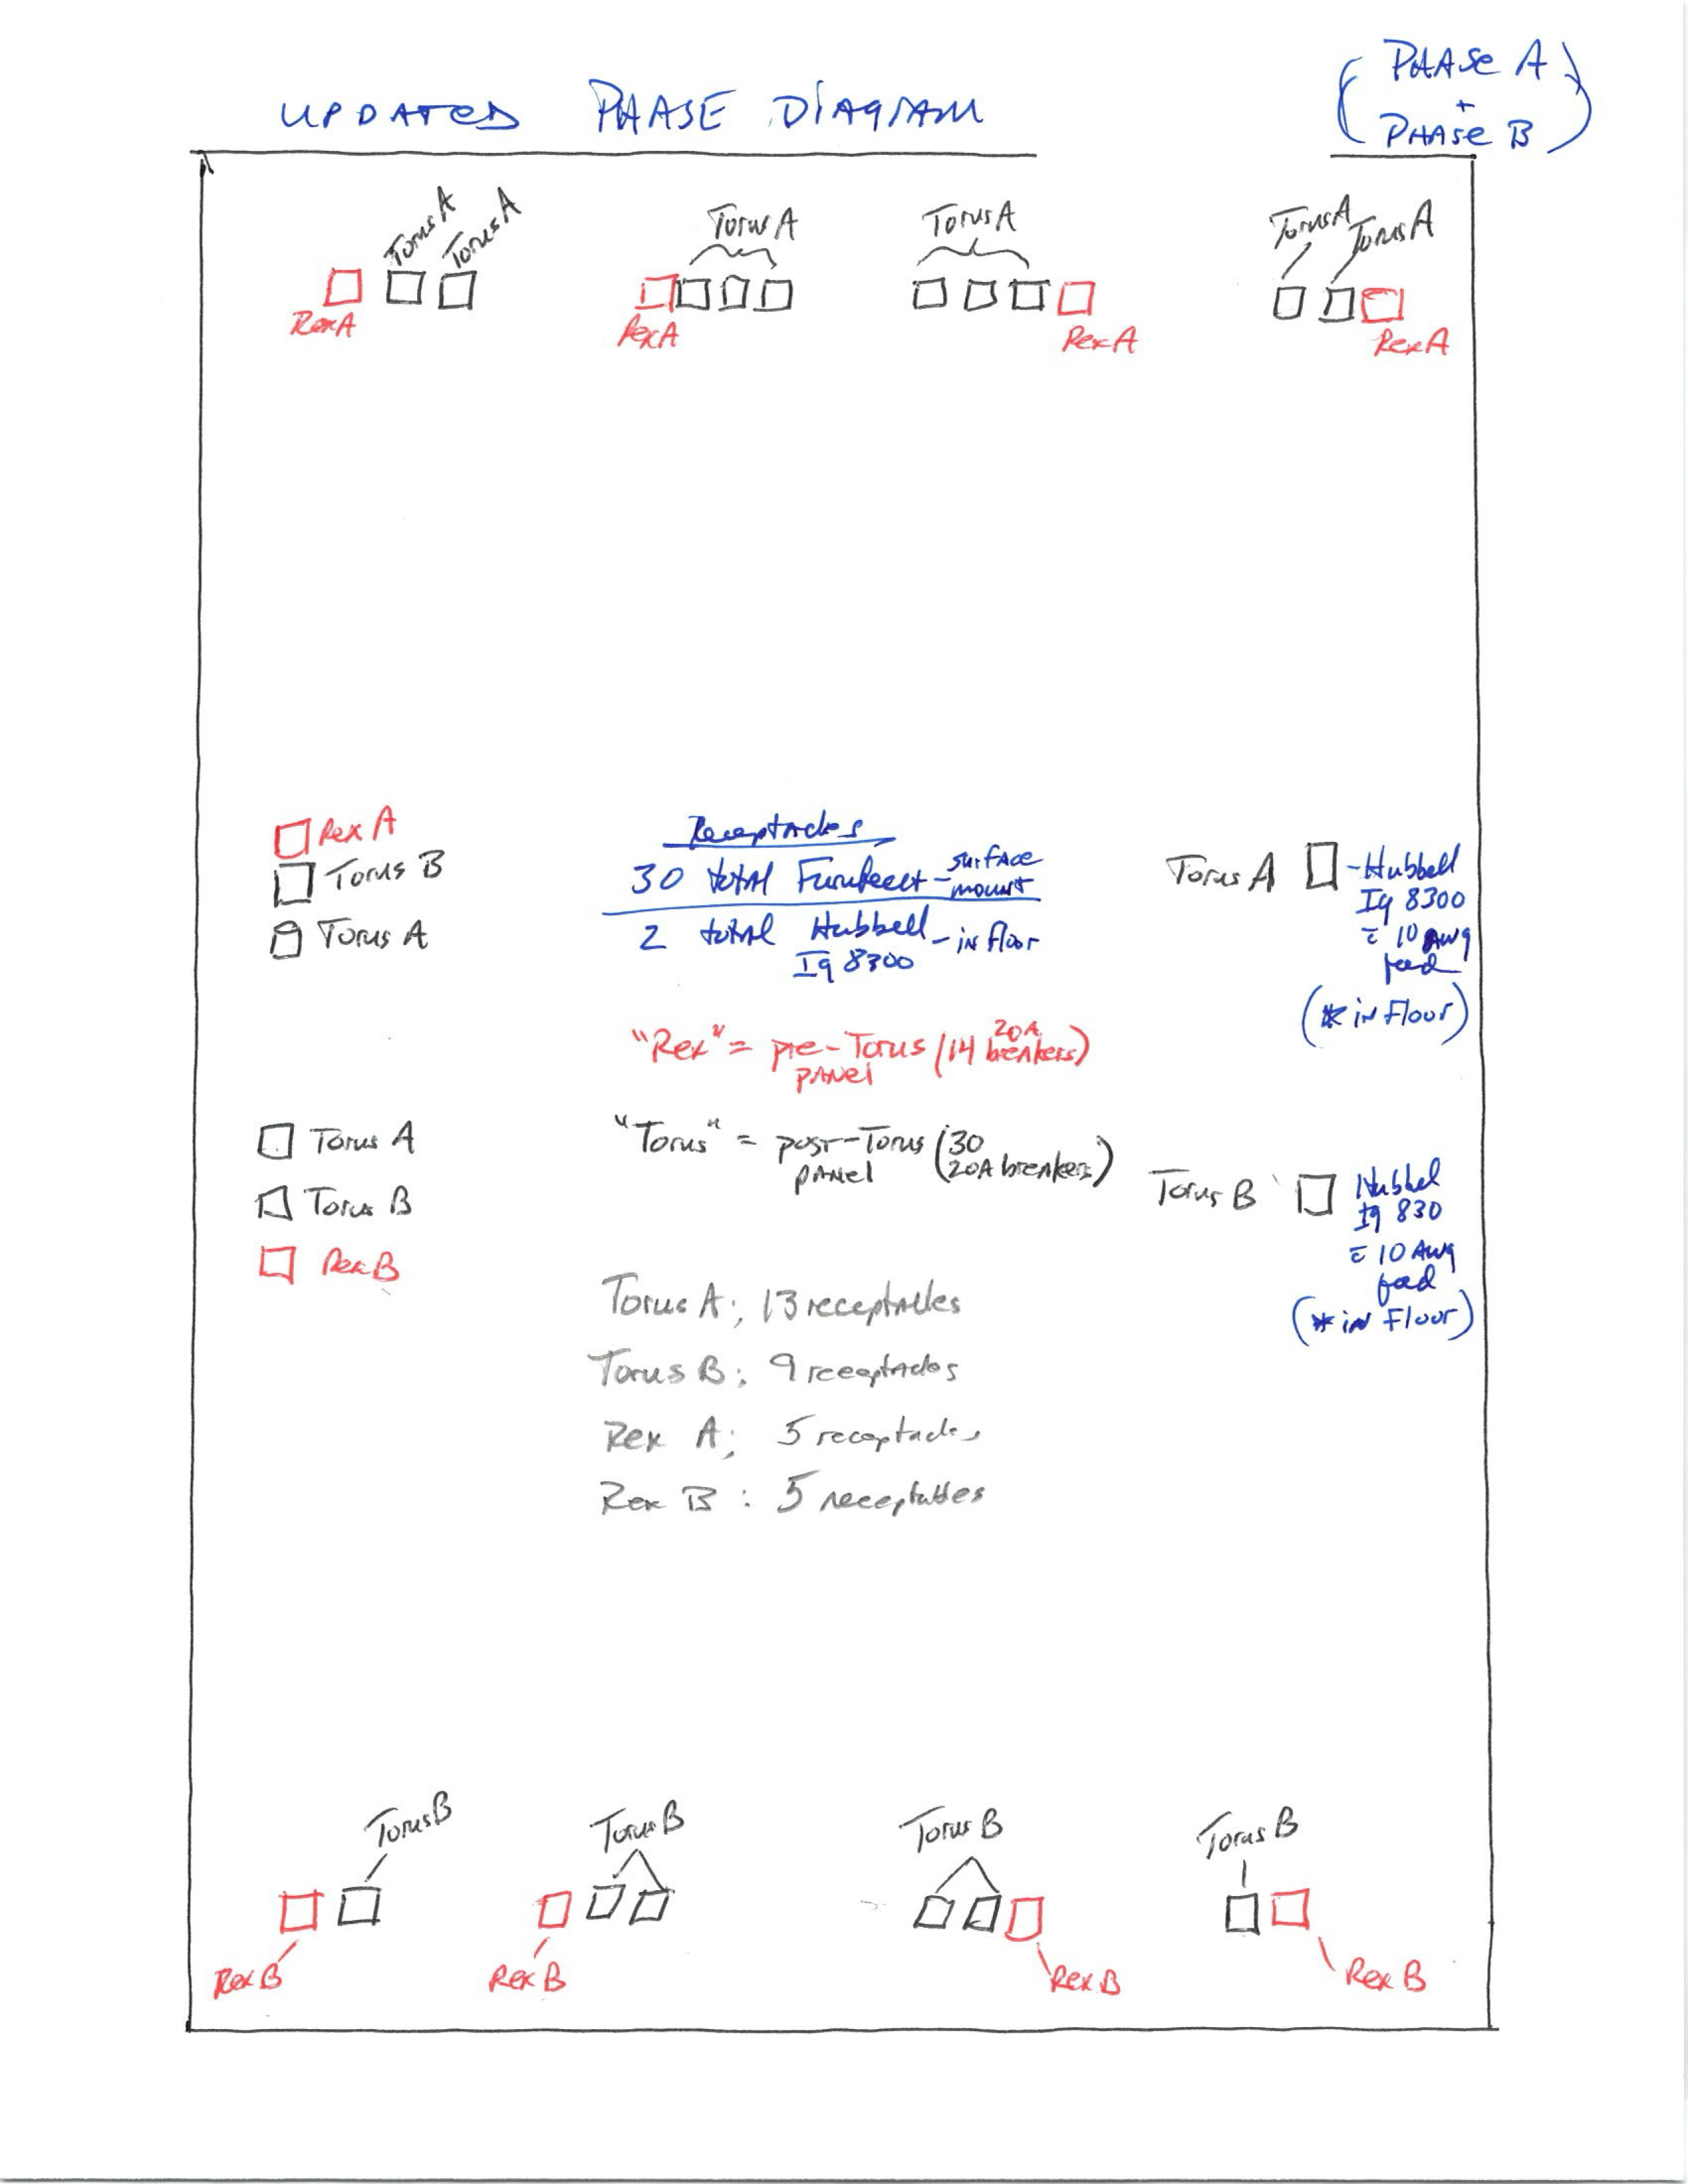 UPDATED PHASE DIAGRAM
(PHASE A
+
PHASE B)
Torus A
Torus A
Torus A
Torus A
Torus A
Torus A
Rex A
Rex A
Rex A
Rex A
Rex A
Torus B
Torus A
Receptacles
30 total Furutech - surface mount
2 total Hubbell - in floor
Ig 8300
Torus A
- Hubbell
Ig 8300
c̄ 10 AWG
feed
(* in Floor)
"Rex" = pre-Torus (14 20A breakers)
panel
"Torus" = post-Torus (30
panel 20A breakers)
Torus A
Torus B
Rex B
Torus B
Hubbel
Ig 830
c̄ 10 AWG
feed
(* in Floor)
Torus A; 13 receptacles
Torus B: 9 receptacles
Rex A; 5 receptacles
Rex B: 5 receptacles
Torus B
Torus B
Torus B
Torus B
Rex B
Rex B
Rex B
Rex B